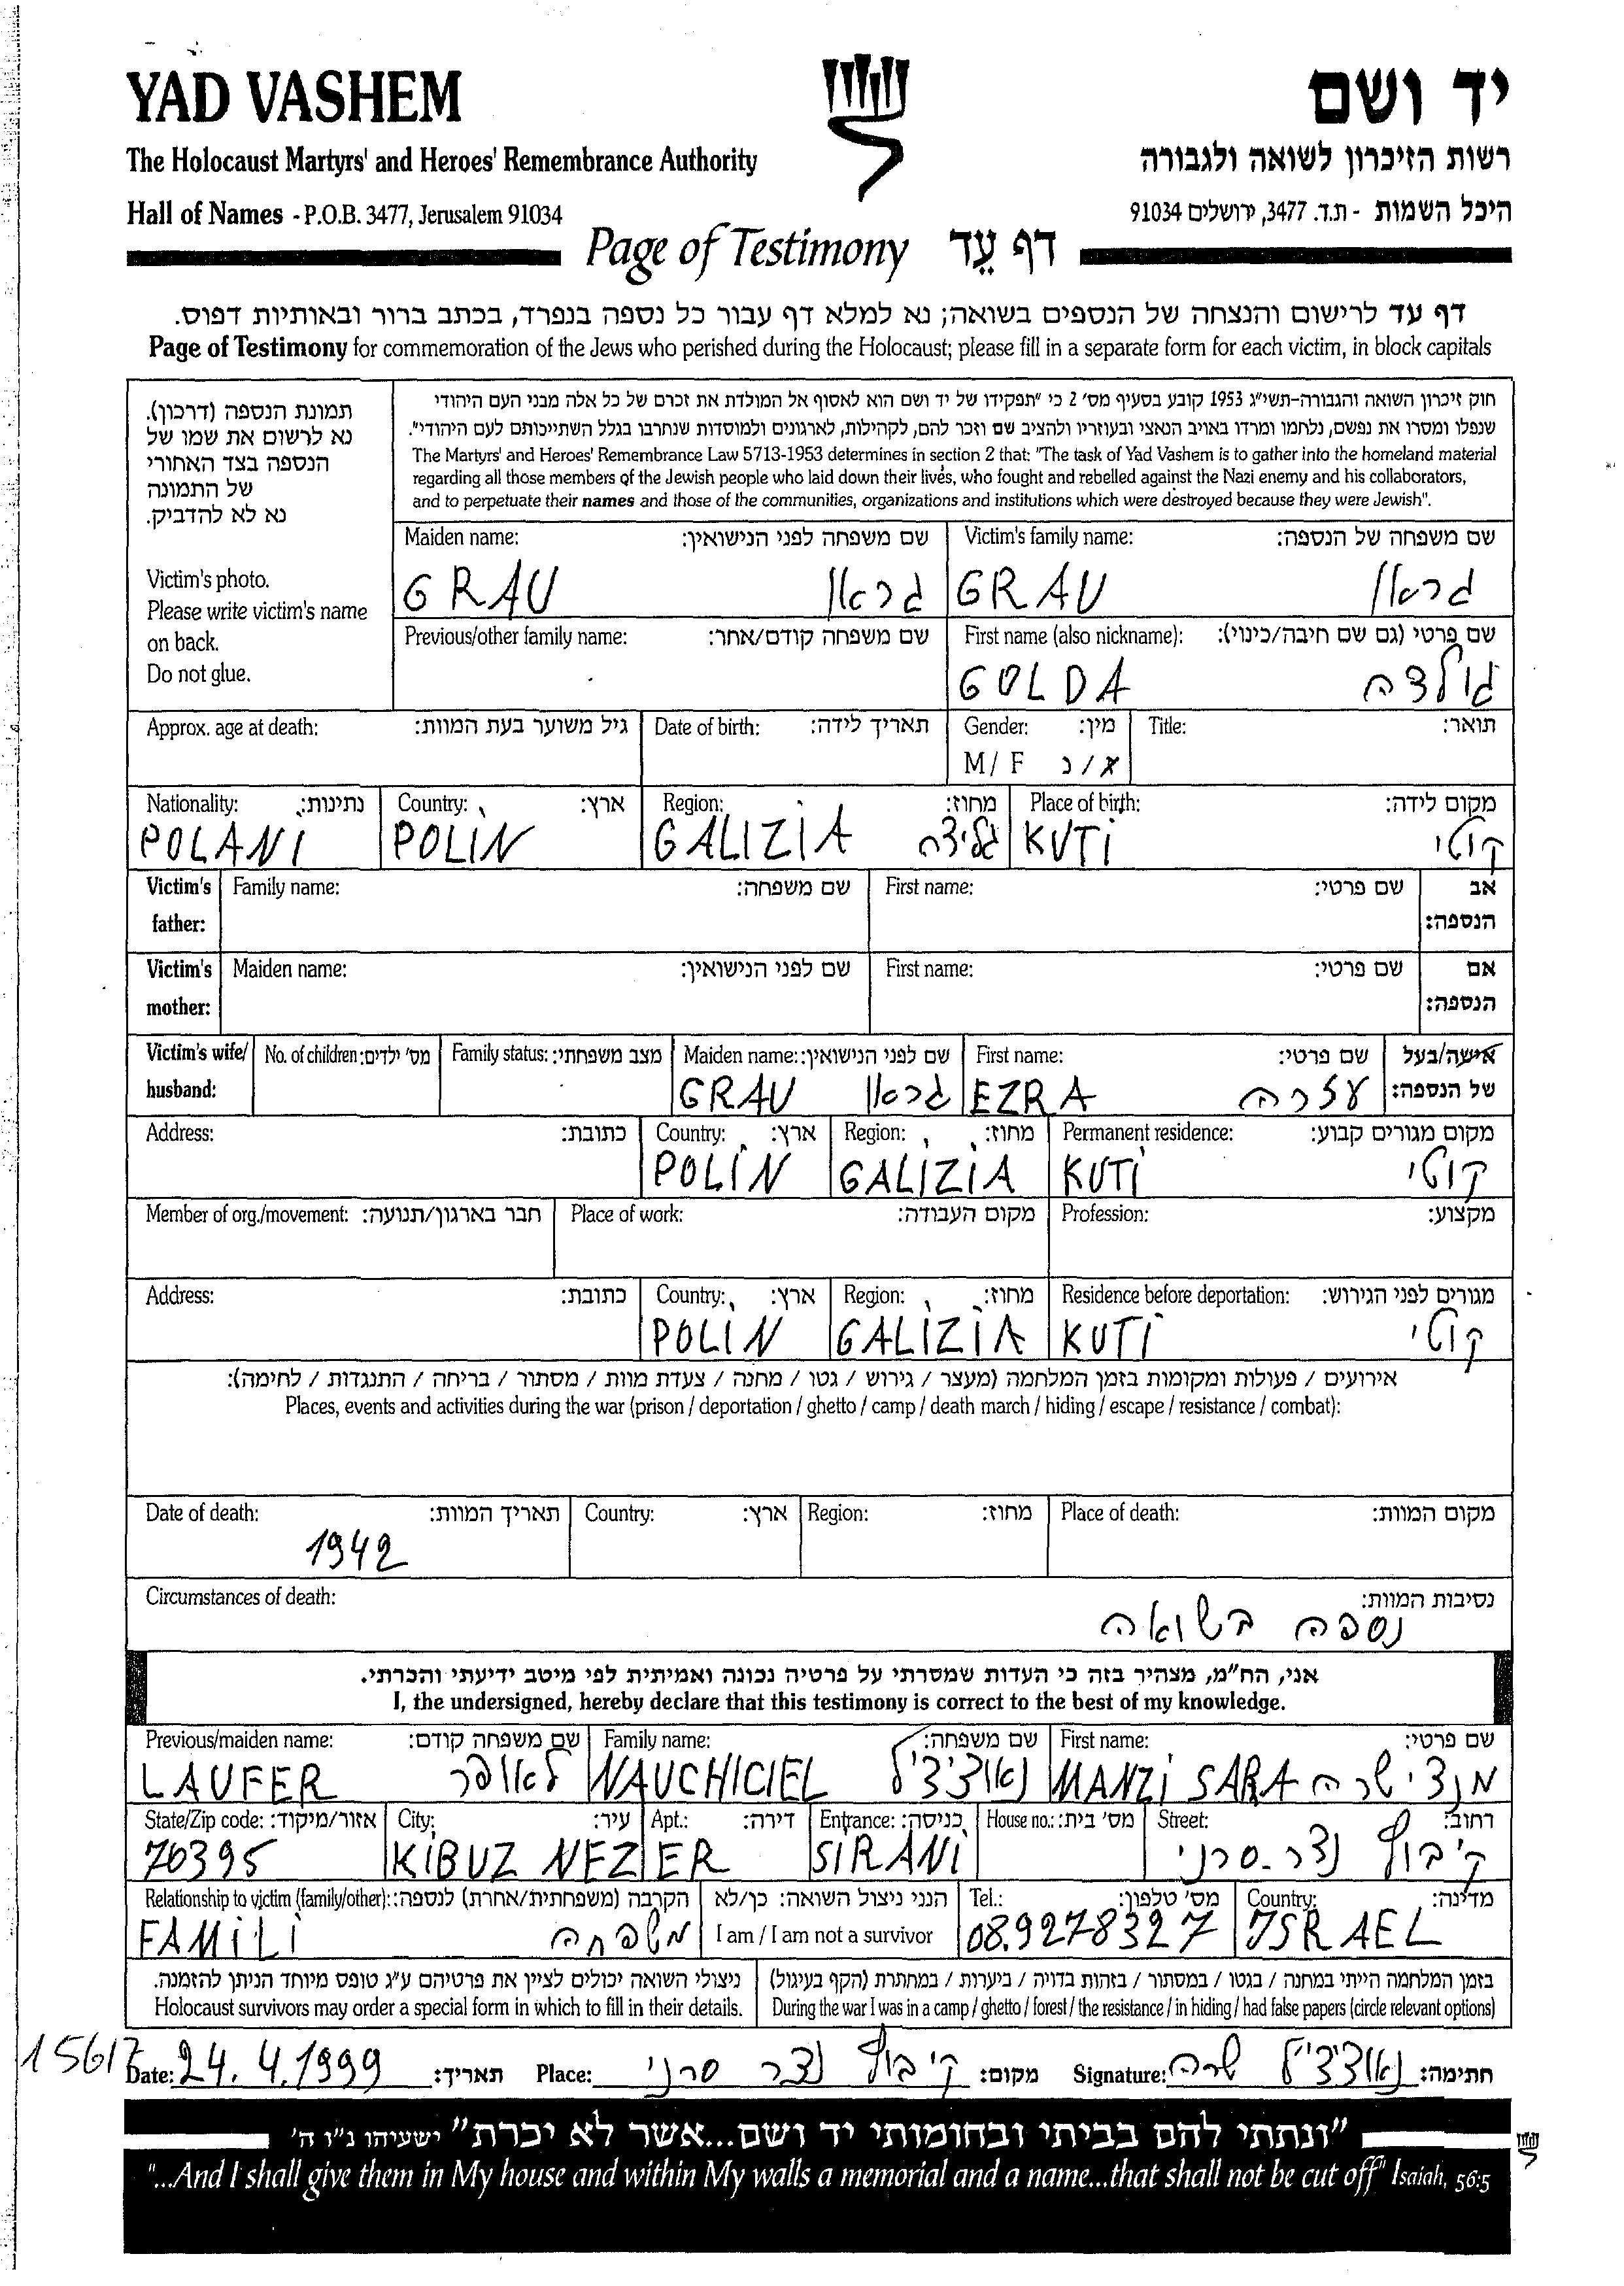 YAD VASHEM
יד ושם
The Holocaust Martyrs' and Heroes' Remembrance Authority
רשות הזיכרון לשואה ולגבורה
Hall of Names - P.O.B. 3477, Jerusalem 91034
היכל השמות - ת.ד. 3477, ירושלים 91034
Page of Testimony דף עֵד
דף עד לרישום והנצחה של הנספים בשואה; נא למלא דף עבור כל נספה בנפרד, בכתב ברור ובאותיות דפוס.
Page of Testimony for commemoration of the Jews who perished during the Holocaust; please fill in a separate form for each victim, in block capitals
תמונת הנספה (דרכון).
נא לרשום את שמו של
הנספה בצד האחורי
של התמונה
נא לא להדביק.
Victim's photo.
Please write victim's name
on back.
Do not glue.
חוק זיכרון השואה והגבורה-תשי"ג 1953 קובע בסעיף מס' 2 כי "תפקידו של יד ושם הוא לאסוף אל המולדת את זכרם של כל אלה מבני העם היהודי
שנפלו ומסרו את נפשם, נלחמו ומרדו באויב הנאצי ובעוזריו ולהציב שם וזכר להם, לקהילות, לארגונים ולמוסדות שנחרבו בגלל השתייכותם לעם היהודי".
The Martyrs' and Heroes' Remembrance Law 5713-1953 determines in section 2 that: "The task of Yad Vashem is to gather into the homeland material
regarding all those members of the Jewish people who laid down their lives, who fought and rebelled against the Nazi enemy and his collaborators,
and to perpetuate their names and those of the communities, organizations and institutions which were destroyed because they were Jewish".
Maiden name: שם משפחה לפני הנישואין: Victim's family name: שם משפחה של הנספה:
GRAU גראו GRAU גראו
Previous/other family name: שם משפחה קודם/אחר: First name (also nickname): שם פרטי (גם שם חיבה/כינוי):
GOLDA גולדה
Approx. age at death: גיל משוער בעת המוות: Date of birth: תאריך לידה: Gender: מין: Title: תואר:
M/ F ז/נ
Nationality: נתינות: Country: ארץ: Region: מחוז: Place of birth: מקום לידה:
POLANI POLIN GALIZIA גליציה KUTI קוטי
Victim's Family name: שם משפחה: First name: שם פרטי: אב
father: הנספה:
Victim's Maiden name: שם לפני הנישואין: First name: שם פרטי: אם
mother: הנספה:
Victim's wife/ No. of children: מס' ילדים: Family status: מצב משפחתי: Maiden name: שם לפני הנישואין: First name: שם פרטי: אישה/בעל
husband: GRAU גראו EZRA עזרה של הנספה:
Address: כתובת: Country: ארץ: Region: מחוז: Permanent residence: מקום מגורים קבוע:
POLIN GALIZIA KUTI קוטי
Member of org./movement: חבר בארגון/תנועה: Place of work: מקום העבודה: Profession: מקצוע:
Address: כתובת: Country: ארץ: Region: מחוז: Residence before deportation: מגורים לפני הגירוש:
POLIN GALIZIA KUTI קוטי
אירועים / פעולות ומקומות בזמן המלחמה (מעצר / גירוש / גטו / מחנה / צעדת מוות / מסתור / בריחה / התנגדות / לחימה):
Places, events and activities during the war (prison / deportation / ghetto / camp / death march / hiding / escape / resistance / combat):
Date of death: תאריך המוות: Country: ארץ: Region: מחוז: Place of death: מקום המוות:
1942
Circumstances of death: נסיבות המוות:
נספה בשואה
אני, הח"מ, מצהיר בזה כי העדות שמסרתי על פרטיה נכונה ואמיתית לפי מיטב ידיעתי והכרתי.
I, the undersigned, hereby declare that this testimony is correct to the best of my knowledge.
Previous/maiden name: שם משפחה קודם: Family name: שם משפחה: First name: שם פרטי:
LAUFER לאופר NAUCHICIEL נאוציציל MANZI SARA מנצי שרה
State/Zip code: אזור/מיקוד: City: עיר: Apt.: דירה: Entrance: כניסה: House no.: מס' בית: Street: רחוב:
70395 KIBUZ NEZER SIRANI קיבוץ נצר-סרני
Relationship to victim (family/other): הקרבה (משפחתית/אחרת) לנספה: הנני ניצול השואה: כן/לא Tel.: מס' טלפון: Country: מדינה:
FAMILI משפחה I am / I am not a survivor 08.9278327 ISRAEL
ניצולי השואה יכולים לציין את פרטיהם ע"ג טופס מיוחד הניתן להזמנה. בזמן המלחמה הייתי במחנה / בגטו / במסתור / בזהות בדויה / ביערות / במחתרת (הקף בעיגול)
Holocaust survivors may order a special form in which to fill in their details. During the war I was in a camp / ghetto / forest / the resistance / in hiding / had false papers (circle relevant options)
15617 Date: 24.4.1999 תאריך: Place: קיבוץ נצר סרני מקום: Signature: נאוציציל שרה חתימה:
"ונתתי להם בביתי ובחומותי יד ושם...אשר לא יכרת" ישעיהו נ"ו ה'
"...And I shall give them in My house and within My walls a memorial and a name...that shall not be cut off" Isaiah, 56:5